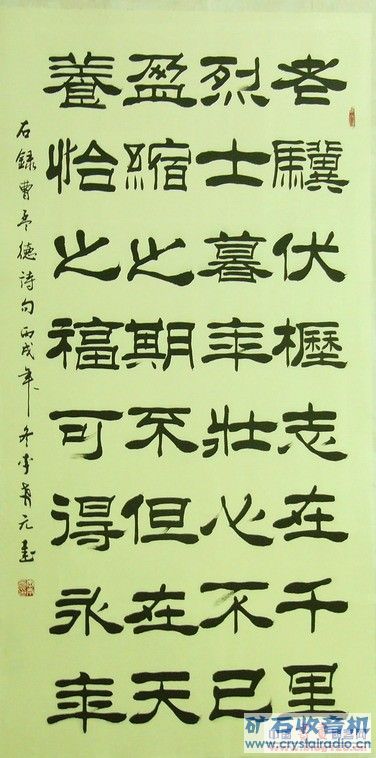 老驥伏櫪志在千里
烈士暮年壯心不已
盈縮之期不但在天
養怡之福可得永年
右錄曹孟德诗句丙戌年冬
矿石收音机
www.crystalradio.cn